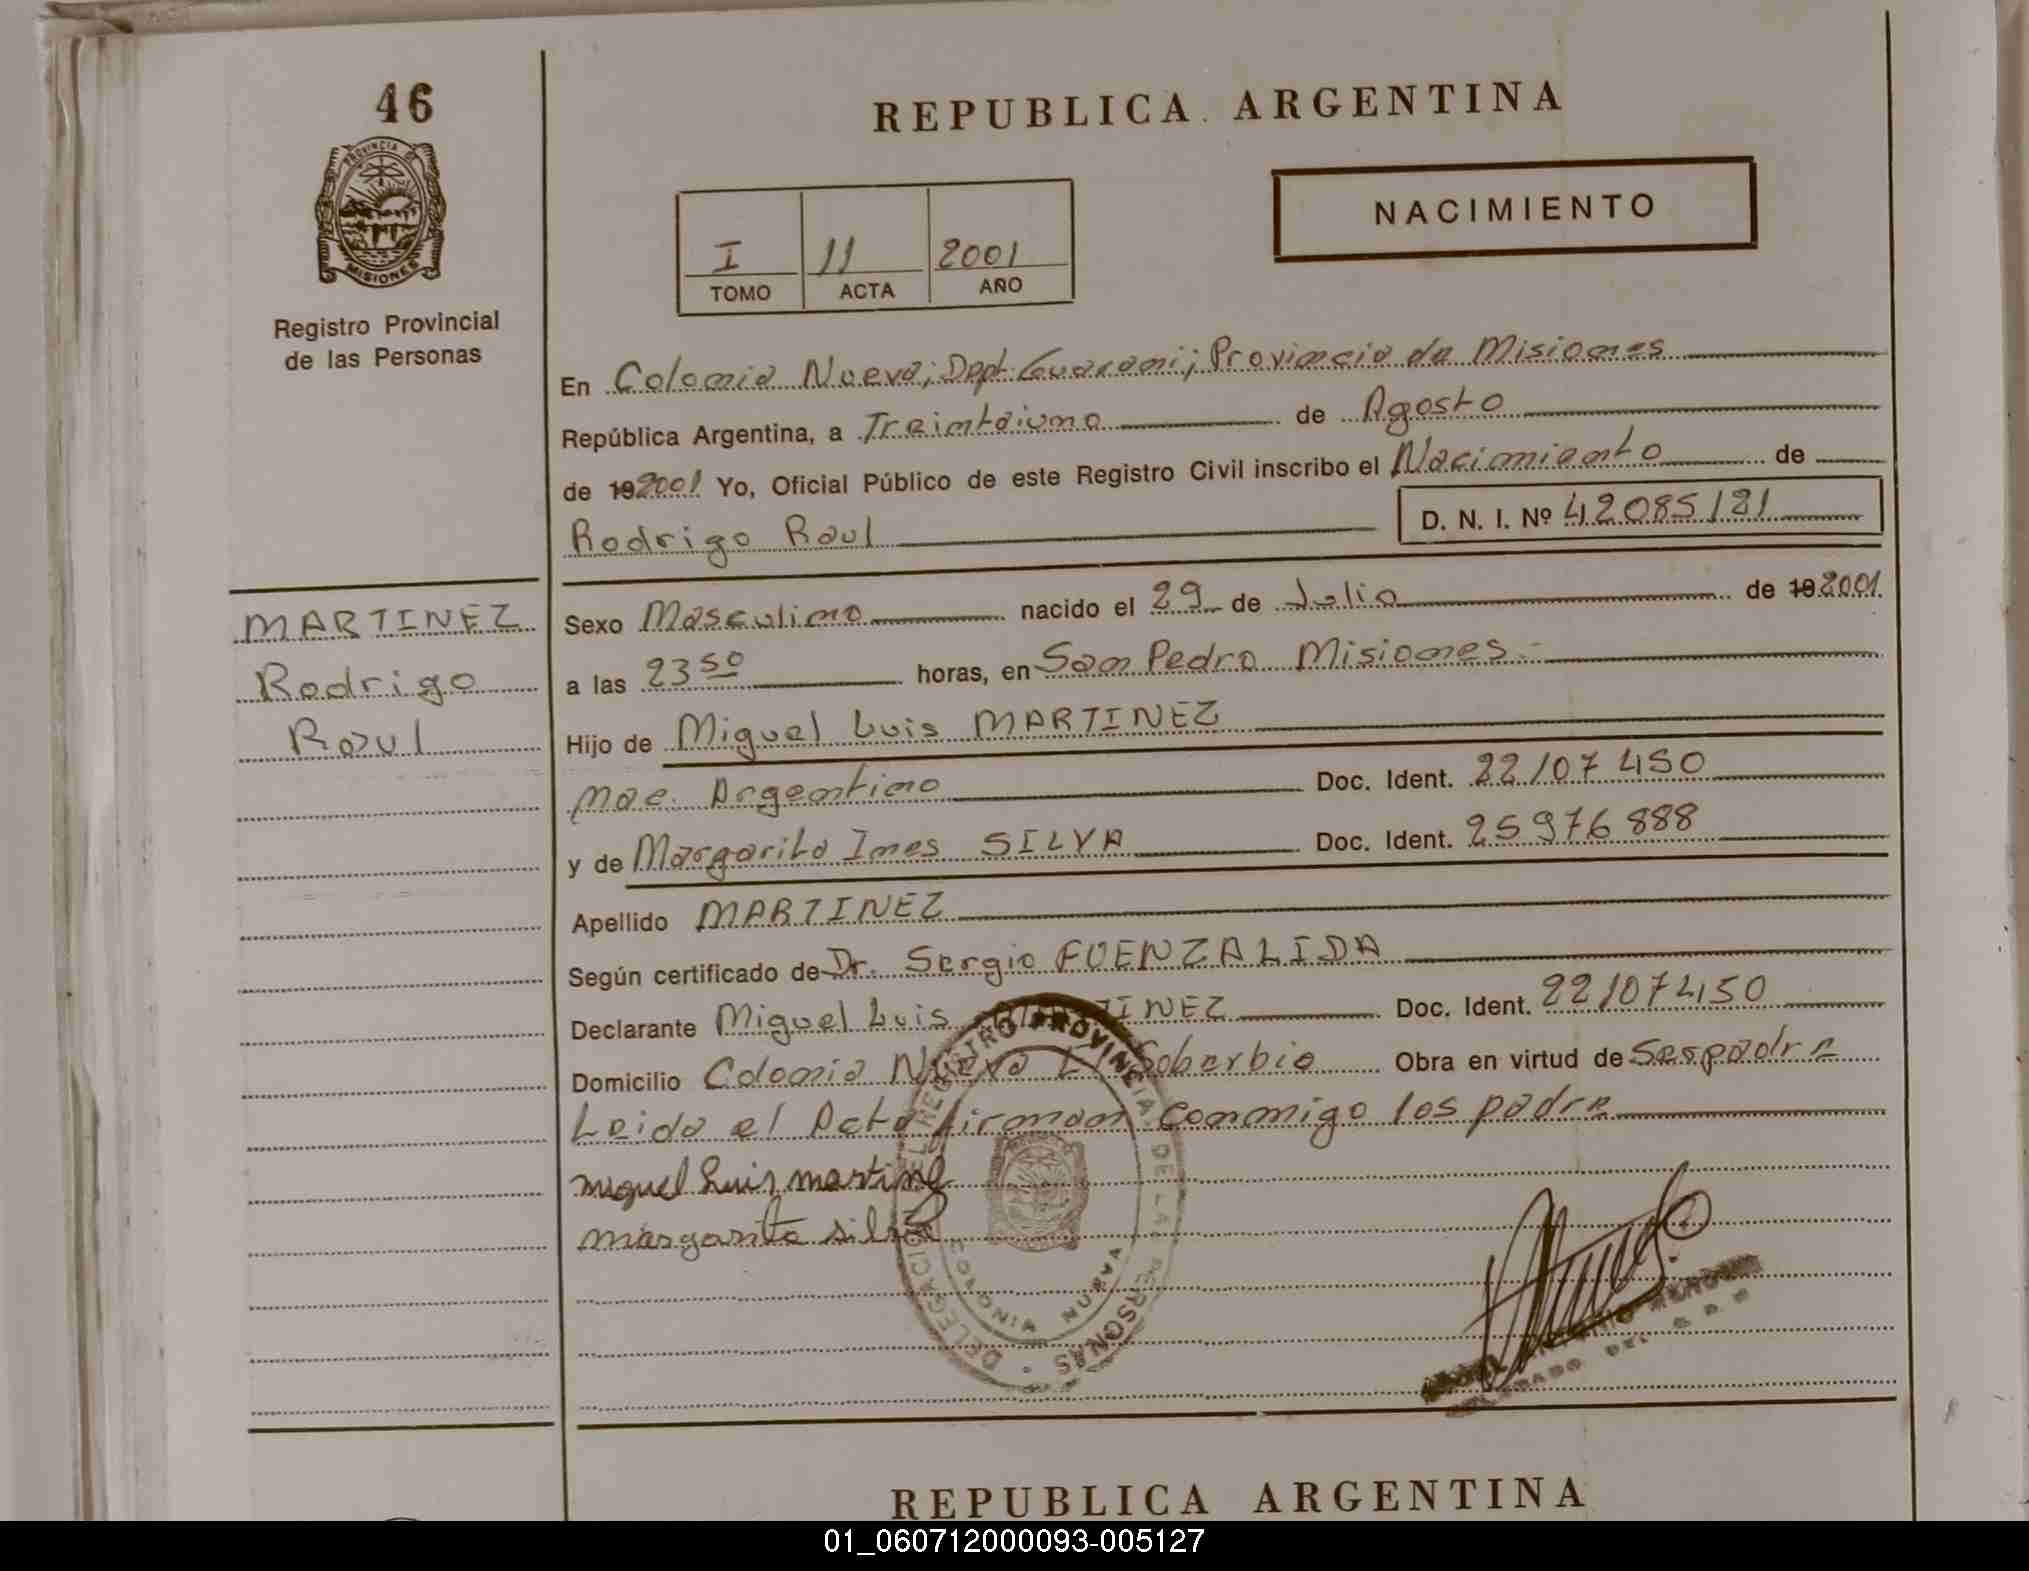 46
REPUBLICA ARGENTINA
PROVINCIA DE
MISIONES
NACIMIENTO
I 11 2001
TOMO ACTA AÑO
Registro Provincial
de las Personas
En Colonia Nueva; Dept. Guarani; Provincia de Misiones
República Argentina, a Treintaiuno de Agosto
de 192001 Yo, Oficial Público de este Registro Civil inscribo el Nacimiento de
Rodrigo Raul D. N. I. Nº 42085121
MARTINEZ
Rodrigo
Raul
Sexo Masculino nacido el 29 de Julio de 192001
a las 23 50 horas, en San Pedro Misiones.-
Hijo de Miguel Luis MARTINEZ
Nac. Argentino Doc. Ident. 22107450
y de Margarita Ines SILVA Doc. Ident. 25976888
Apellido MARTINEZ
Según certificado de Dr. Sergio FUENZALIDA
Declarante Miguel Luis MARTINEZ Doc. Ident. 22107450
Domicilio Colonia Nueva El Soberbio Obra en virtud de Serpadre
Leida el Acta firman conmigo los padre
miguel Luis martine
margarita silva
DELEGACION DEL REGISTRO PROVINCIAL DE LAS PERSONAS
COLONIA NUEVA
DELEGADO DEL R. P.
REPUBLICA ARGENTINA
01_060712000093-005127